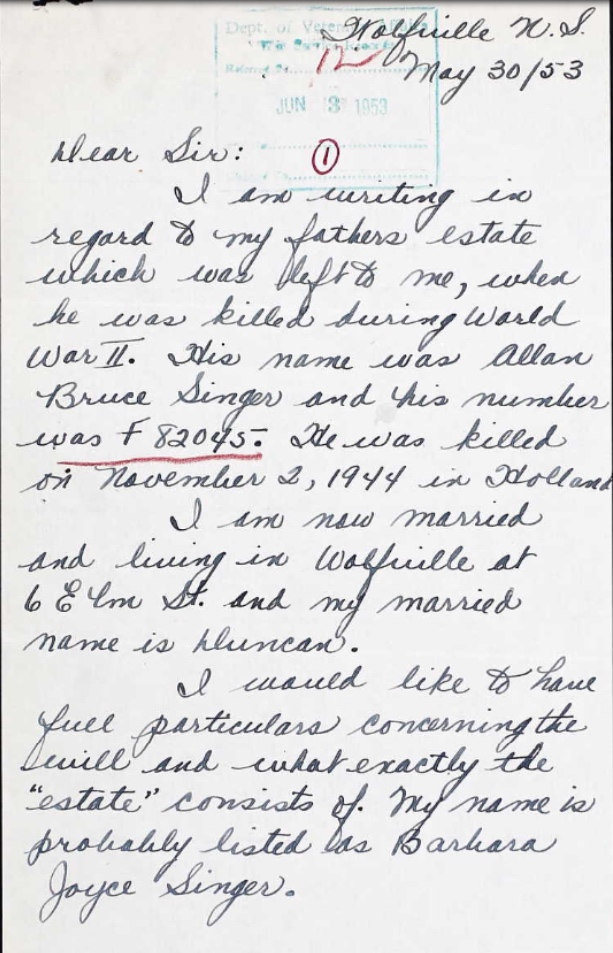 Wolfville N.S.
Dept. of Veterans Affairs
War Service Records
12
May 30/53
JUN 3 1953
Dear Sir:
1
I am writing in
regard to my fathers estate
which was left to me, when
he was killed during World
War II. His name was Allan
Bruce Singer and his number
was F 82045. He was killed
on November 2, 1944 in Holland
I am now married
and living in Wolfville at
6 Elm St. and my married
name is Duncan.
I would like to have
full particulars concerning the
will and what exactly the
"estate" consists of. My name is
probably listed as Barbara
Joyce Singer.